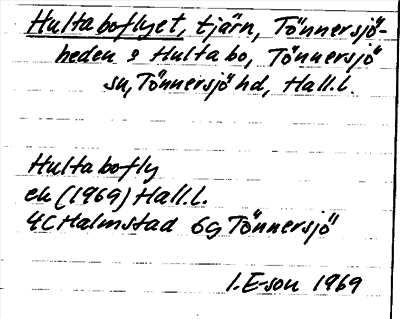 Hultaboflyet, tjärn, Tönnersjö-
heden o Hultabo, Tönnersjö
sn, Tönnersjö hd, Hall.l.
Hultabofly
ek (1969) Hall.l.
4C Halmstad 6g Tönnersjö
I.E-son 1969